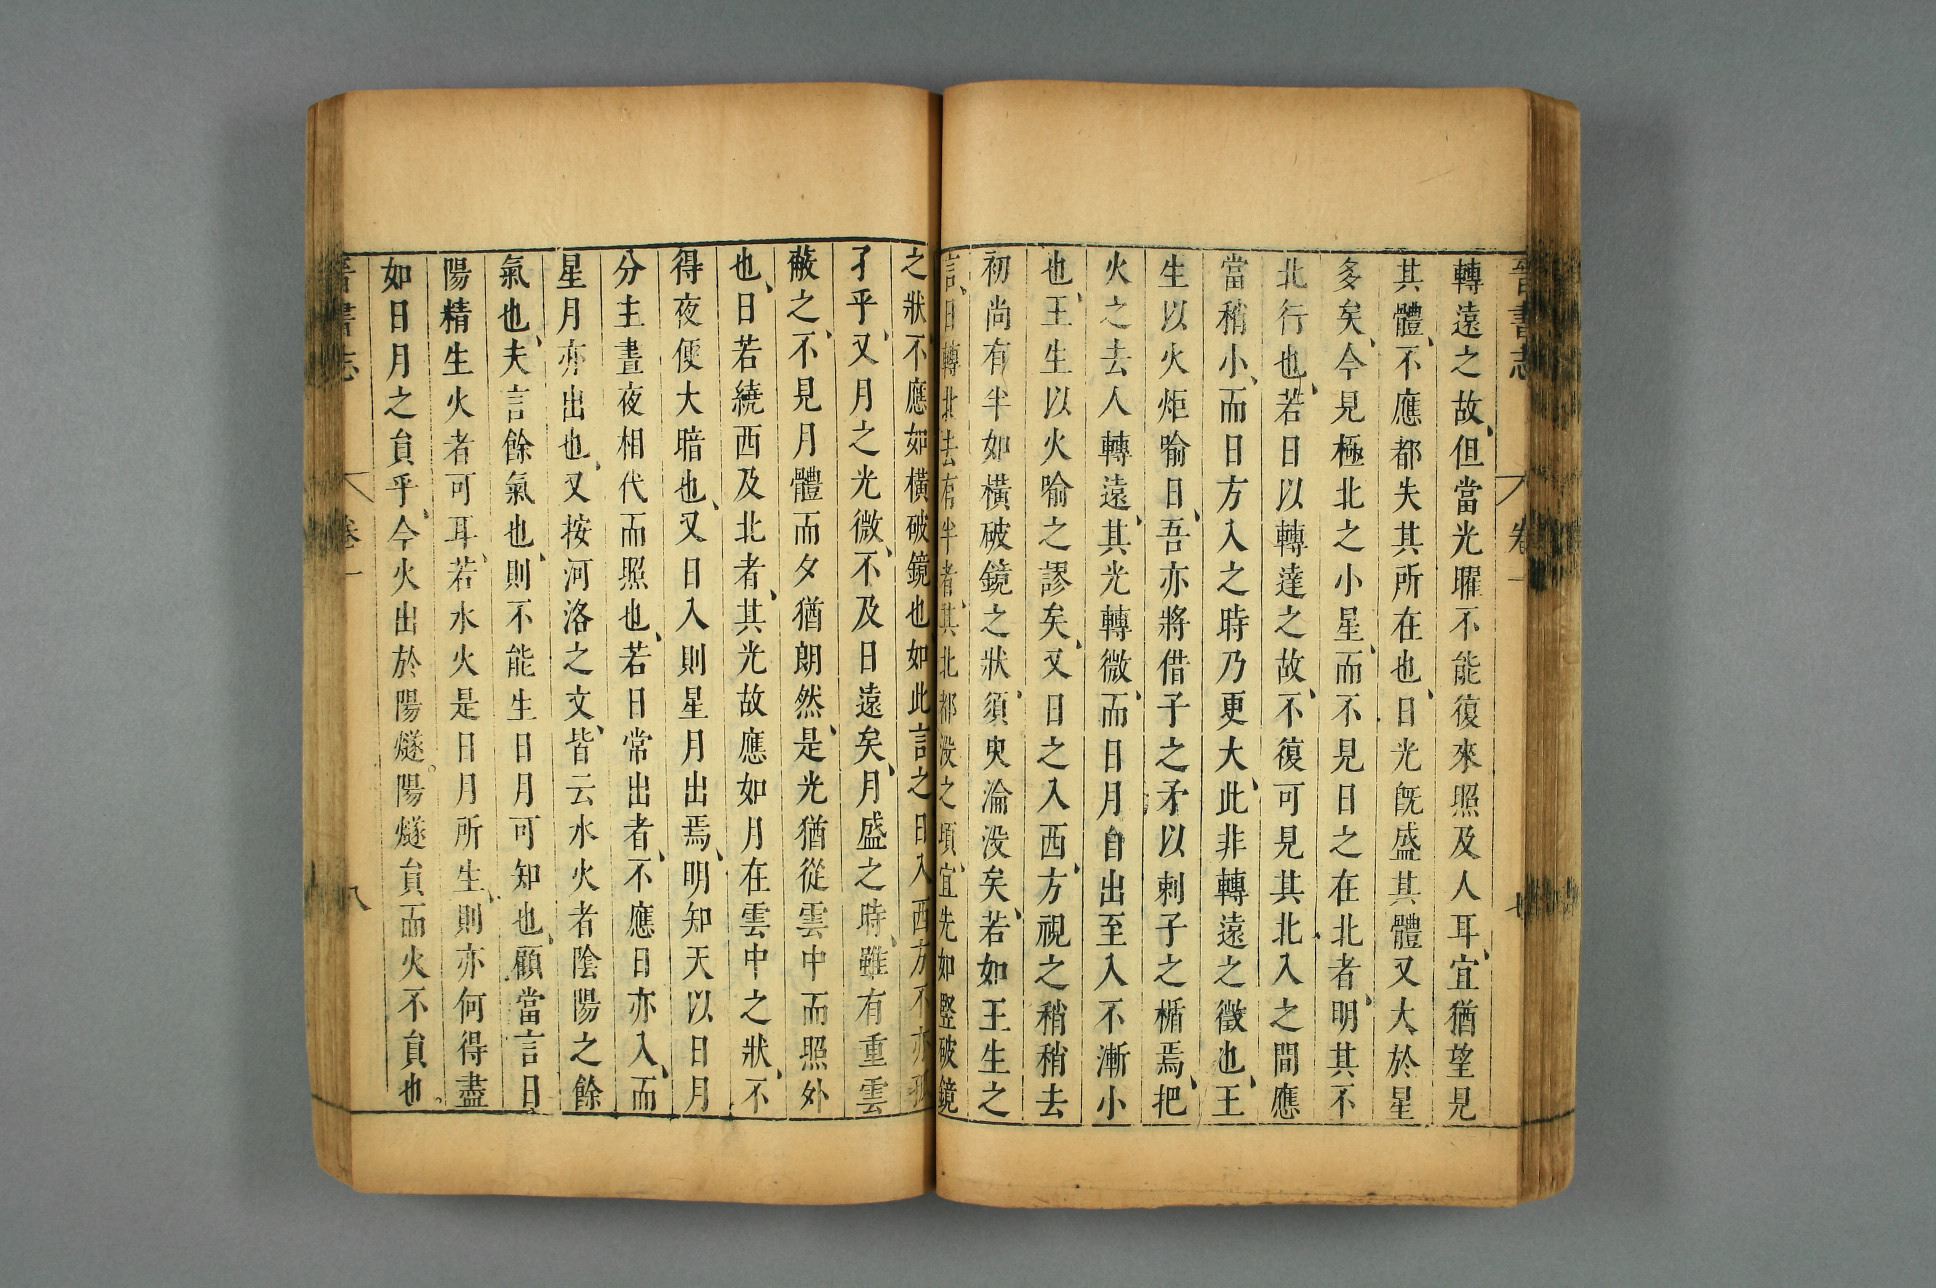 晉書志 卷一 七
轉遠之故但當光曜不能復來照及人耳宜猶望見
其體不應都失其所在也日光旣盛其體又大於星
多矣今見極北之小星而不見日之在北者明其不
北行也若日以轉達之故不復可見其北入之間應
當稍小而日方入之時乃更大此非轉遠之徵也王
生以火炬喻日吾亦將借子之矛以刺子之楯焉把
火之去人轉遠其光轉微而日月自出至入不漸小
也王生以火喻之謬矣又日之入西方視之稍稍去
初尚有半如橫破鏡之狀須臾淪没矣若如王生之
言日轉北去有半者其北都没之頃宜先如竪破鏡
之狀不應如橫破鏡也如此言之日入西方不亦孤
孑乎又月之光微不及日遠矣月盛之時雖有重雲
蔽之不見月體而夕猶朗然是光猶從雲中而照外
也日若繞西及北者其光故應如月在雲中之狀不
得夜便大暗也又日入則星月出焉明知天以日月
分主晝夜相代而照也若日常出者不應日亦入而
星月亦出也又按河洛之文皆云水火者陰陽之餘
氣也夫言餘氣也則不能生日月可知也顧當言日
陽精生火者可耳若水火是日月所生則亦何得盡
如日月之貟乎今火出於陽燧陽燧貟而火不貟也
晉書志 卷一 八